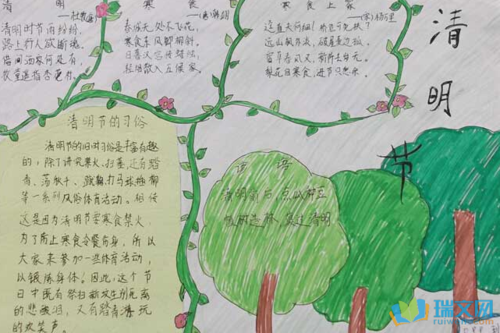 清 明
清明时节雨纷纷,
路上行人欲断魂。
借问酒家何处有,
牧童遥指杏
寒 食
春城无处不飞花,
寒食东风御柳斜。
日暮汉宫传蜡烛,
轻烟散入五侯家。
寒食上冢
梨花自寒食,进节只愁余。
清明节
清明节的习俗
清明节的习俗是丰富有趣
的,除了讲究禁火、扫墓,还有踏
青、荡秋千、蹴鞠、打马球、插柳
等一系列风俗体育活动。相传
这是因为清明节要寒食禁火,
为了防止寒食冷餐伤身,所以
大家来参加一些体育活动,
以锻炼身体。因此,这个节
日中既有祭扫新坟生别死离
的悲酸泪,又有踏青游玩
的欢笑声。
谚语
清明前后,点瓜种豆
植树造林,莫过清明
瑞文网